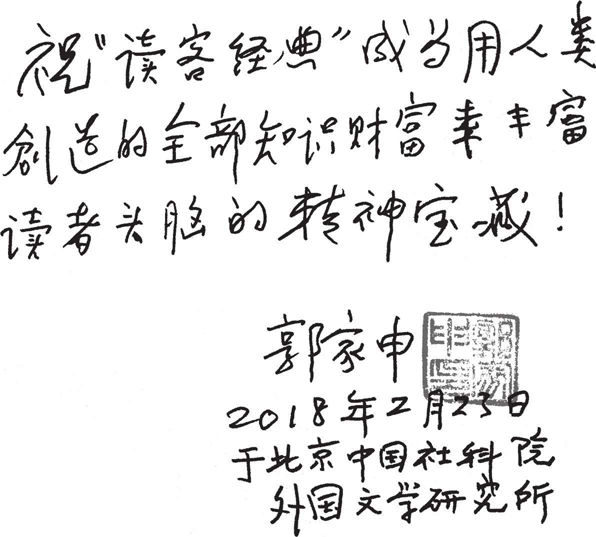 祝“读客经典”成为用人类
創造的全部知识财富来丰富
读者头脑的精神宝藏！
郭家申
2018年2月23日
于北京中国社科院
外国文学研究所